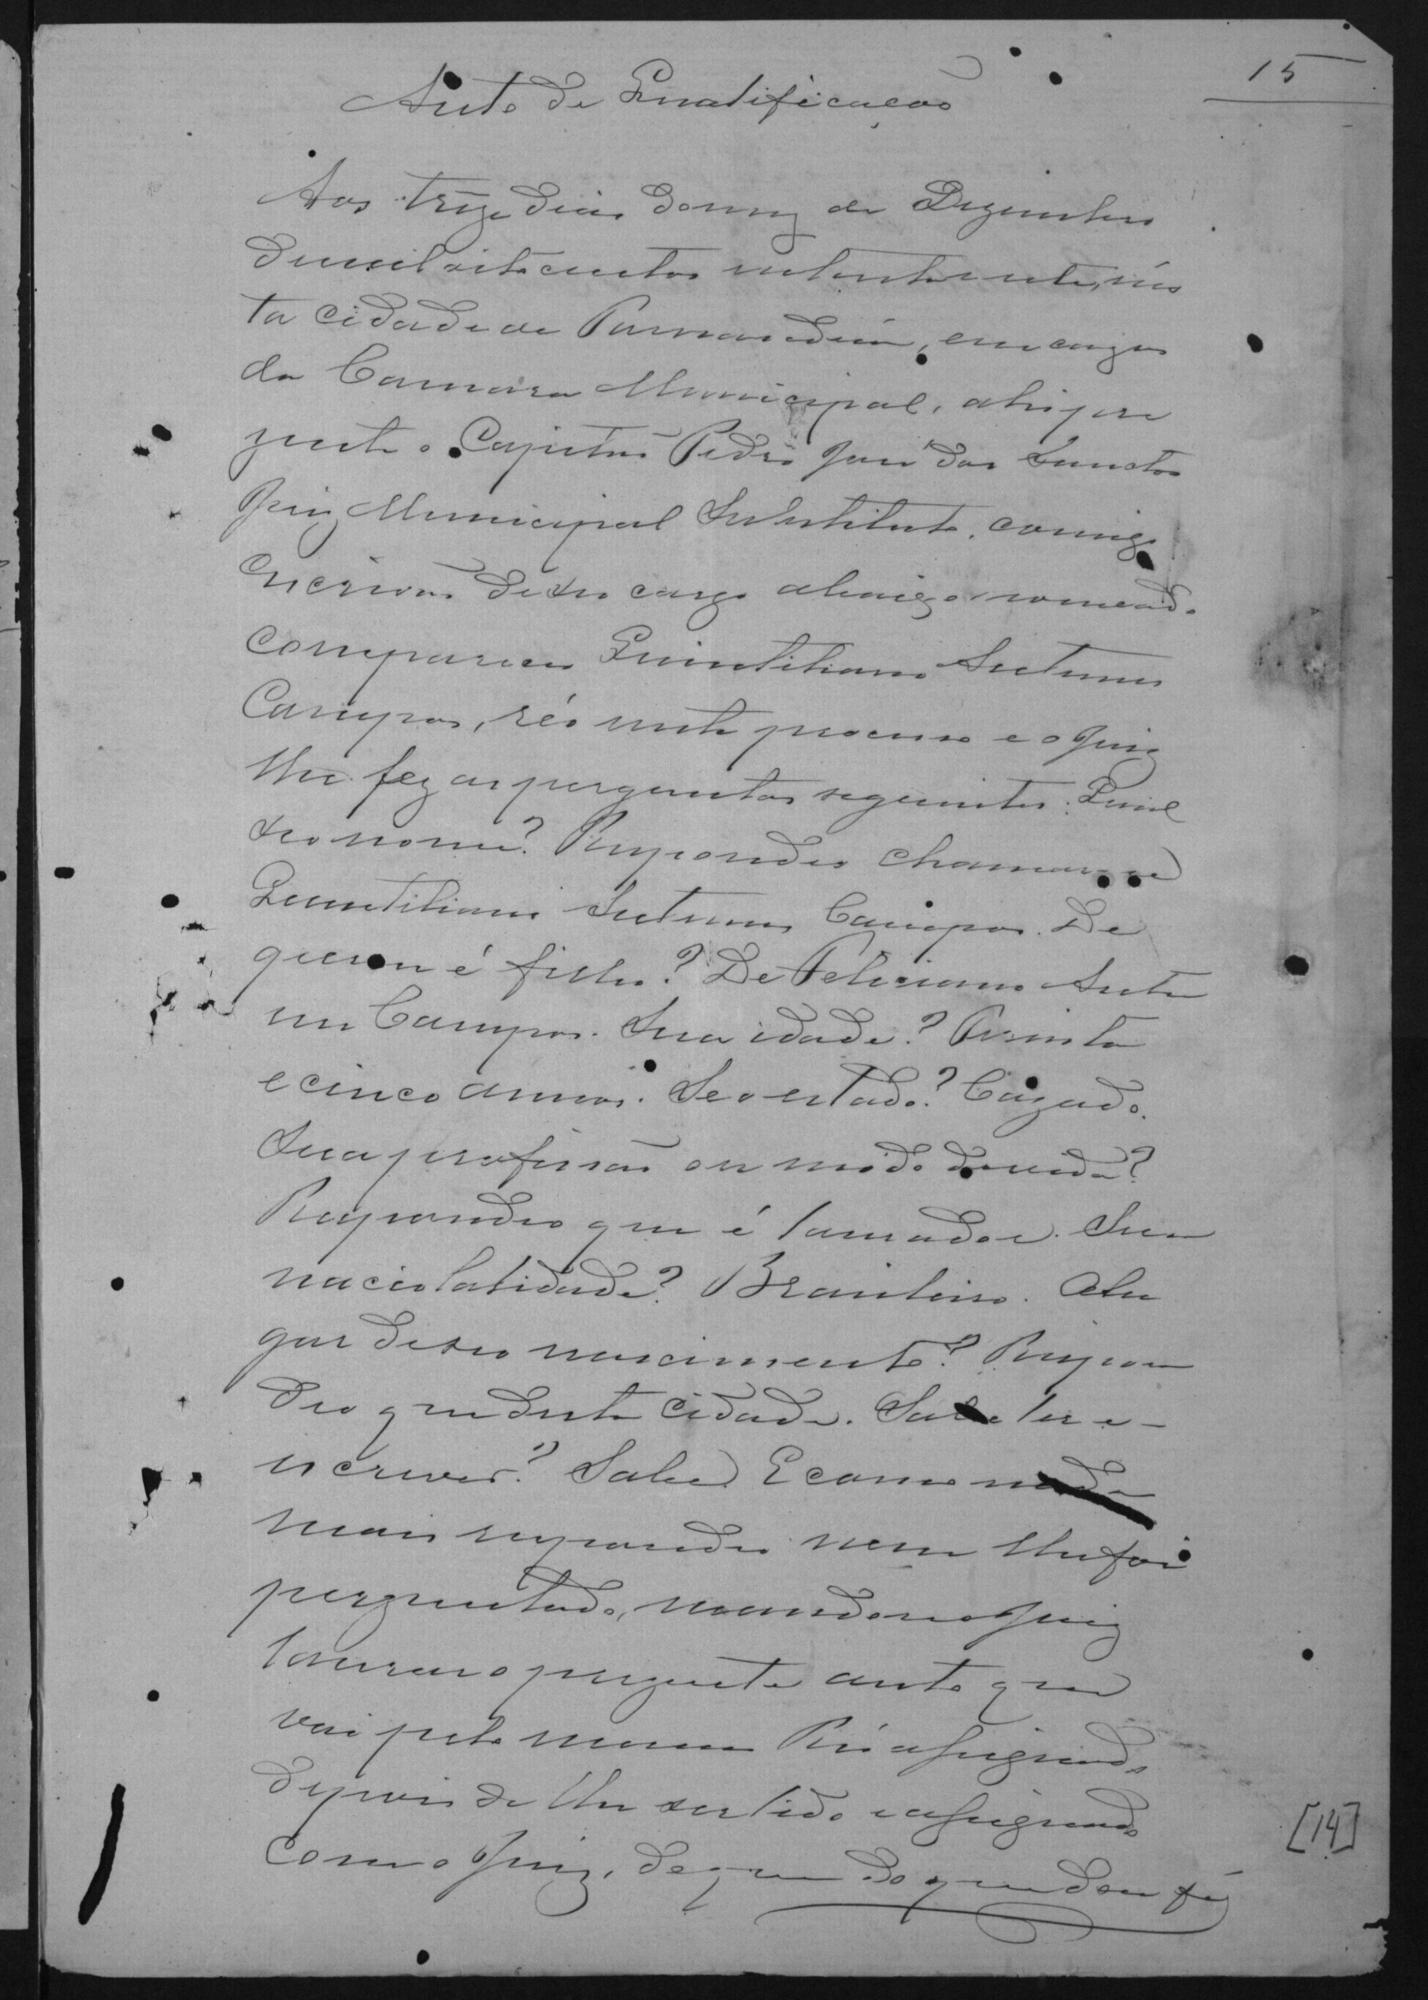 15
Auto de Qualificação
Aos treze dias do mez de Dezembro
de mil oito centos setenta e sete, nes
ta cidade de Parnahiba, em cazas
da Camara Municipal, ahi pre
zente o Capitão Pedro José dos Sanctos
Juiz Municipal Substituto, comigo
escrivão de seo cargo abaixo nomeado
compareceu Quintiliano Antunes
Campos, réo neste processo e o Juiz
lhe fez as perguntas seguintes: Qual
seo nome? Respondeo chamar-se
Quintiliano Antunes Campos. De
quem é filho? De Feliciano Antu
nes Campos. Sua idade? Trinta
e cinco annos. Seo estado? Cazado.
Sua profissão ou modo de vida?
Respondeo que é lavrador. Sua
naciolatidade? Brasileiro. O lu
gar de seo nascimento? Respon
deo que desta cidade. Sabe ler e
escrever? Sabe. E como nada
mais respondeo nem lhe foi
perguntado, mandou o Juiz
lavrar o prezente auto que
vai pelo mesmo Réo assignado
depois de lhe ser lido e assignado
com o Juiz, de que do que dou fé
[14]